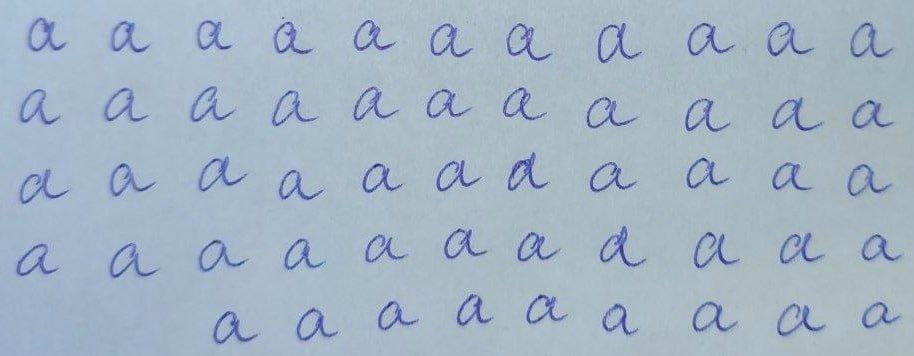 a a a a a a a a a a a
a a a a a a a a a a a
a a a a a a a a a a a
a a a a a a a a a a a
a a a a a a a a a